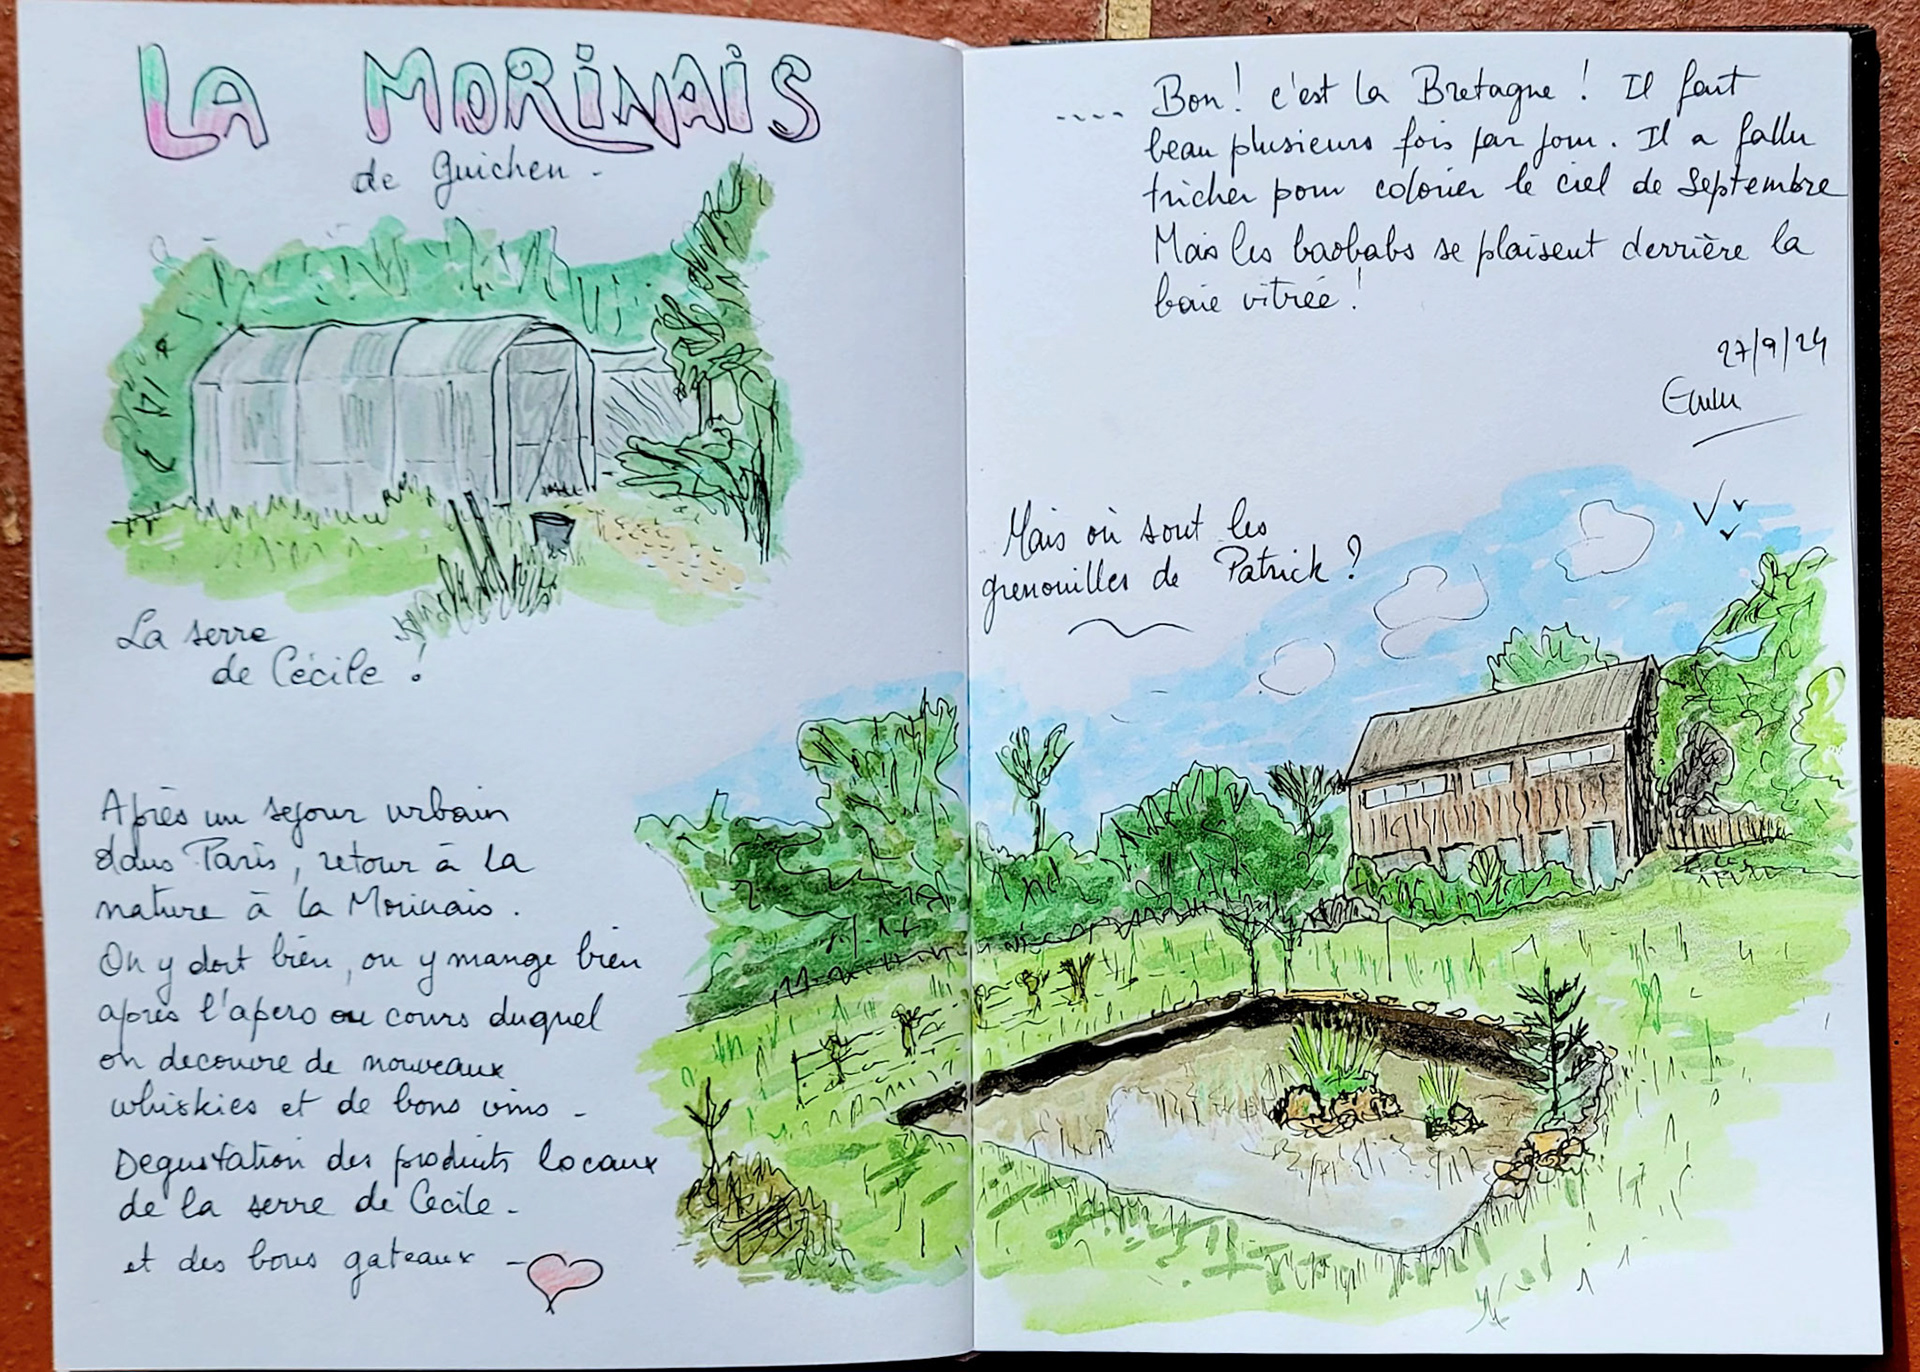 LA MORINAIS
de Guichen -
La serre
de Cécile !
Après un sejour urbain
dans Paris, retour à la
nature à la Morinais.
On y dort bien, on y mange bien
après l'apero au cours duquel
on decouvre de nouveaux
whiskies et de bons vins -
Degustation des produits locaux
de la serre de Cecile -
et des bons gateaux -
.... Bon! c'est la Bretagne ! Il fait
beau plusieurs fois par jour. Il a fallu
tricher pour colorier le ciel de Septembre
Mais les baobabs se plaisent derrière la
baie vitrée !
27/9/24
Mais où sont les
grenouilles de Patrick ?